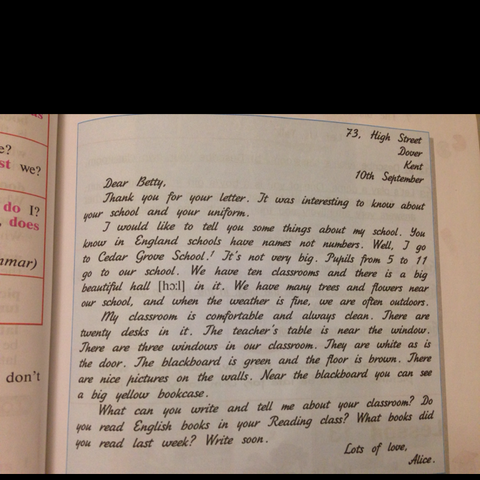 us
e?
st we?
do I?
, does
mmar)
don't
73, High Street
Dover
Kent
10th September
Dear Betty,
Thank you for your letter. It was interesting to know about
your school and your uniform.
I would like to tell you some things about my school. You
know in England schools have names not numbers. Well, I go
to Cedar Grove School.¹ It's not very big. Pupils from 5 to 11
go to our school. We have ten classrooms and there is a big
beautiful hall [hɔ:l] in it. We have many trees and flowers near
our school, and when the weather is fine, we are often outdoors.
My classroom is comfortable and always clean. There are
twenty desks in it. The teacher's table is near the window.
There are three windows in our classroom. They are white as is
the door. The blackboard is green and the floor is brown. There
are nice pictures on the walls. Near the blackboard you can see
a big yellow bookcase.
What can you write and tell me about your classroom? Do
you read English books in your Reading class? What books did
you read last week? Write soon.
Lots of love,
Alice.